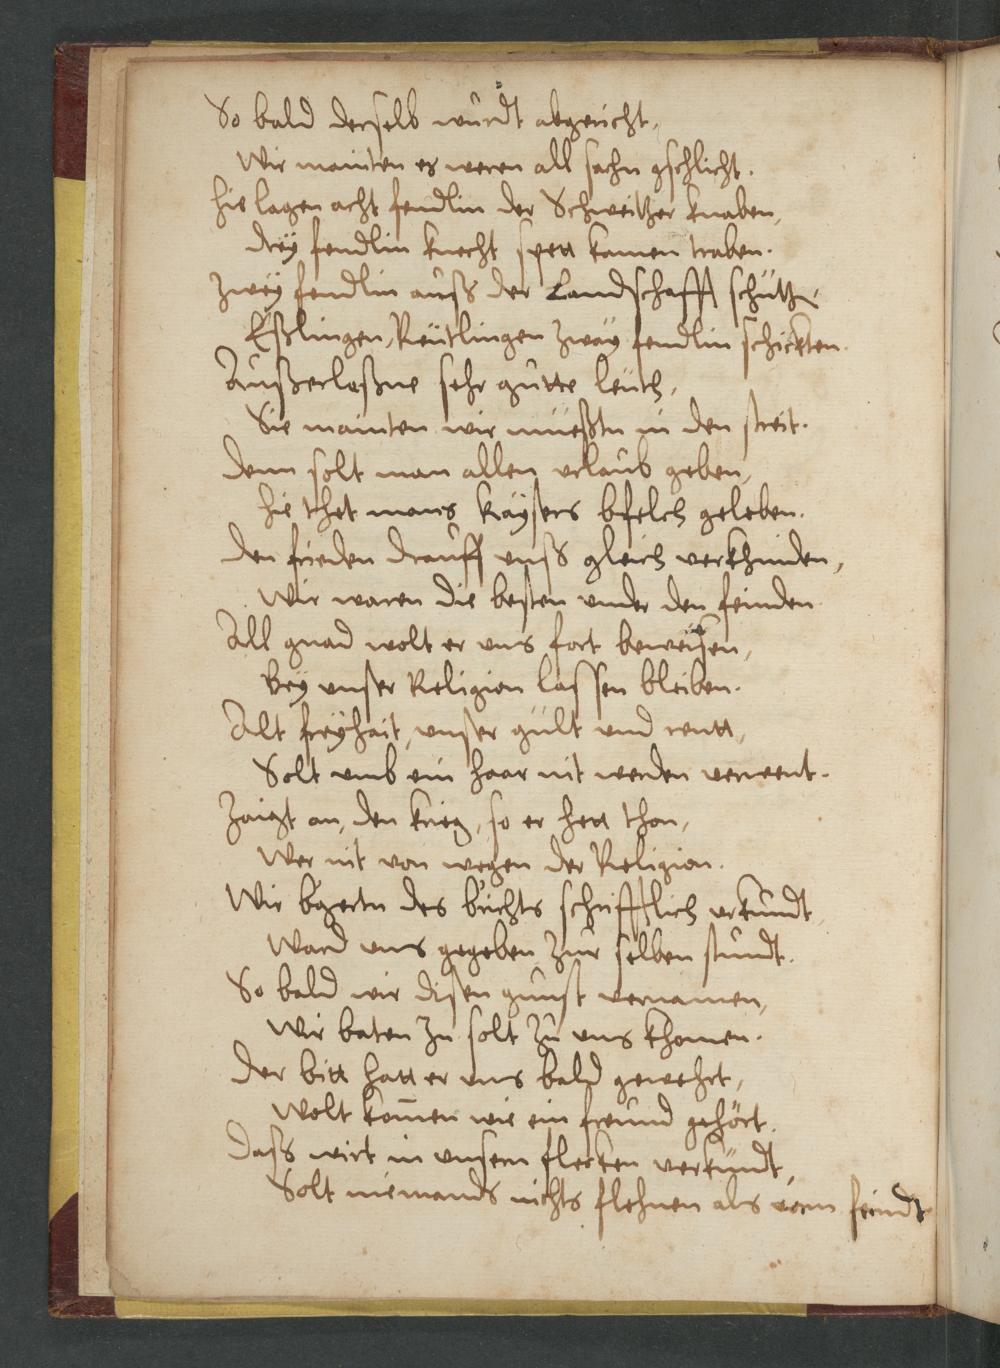 So bald derselb wurdt abgericht,
Wir mainten es weren all sachn gschlicht.
hie lagen acht fendlin der Schweitzer knaben,
drey fendlin knecht spett kamen traben.
Zwey fendlin auß der Landschafft schütz
Eßlingen, Reutlingen zway fendlin schickten.
Außerleßne sehr gutte leüth,
Sie mainten wir müeßtn in den streit.
denn solt man allen urlaub geben,
hie thet mans kaysers bfelch geleben.
den frieden drauff unß gleich verkhinden,
Wir waren die besten under den feinden
All gnad wolt er uns fort beweisen,
Bey unser Religion lassen bleiben.
Alt freyhait, unser gült und rentt,
Solt umb ein haar nit werden verwent.
Zaigt an, den krieg, so er hett thon,
Wer nit von wegen der Religion.
Wir bgertn des brichts schrifftlich urkundt,
Ward uns gegeben zur selben stundt.
So bald wir disen gunst vernamen,
Wir baten Jn solt zu uns khomen.
Der bitt hatt er uns bald gewehrt,
Wolt kom̄en wie ein freund gehört.
Daß wirt in unsern flecken verkündt,
Solt niemands nichts flehnen als vorm feindt